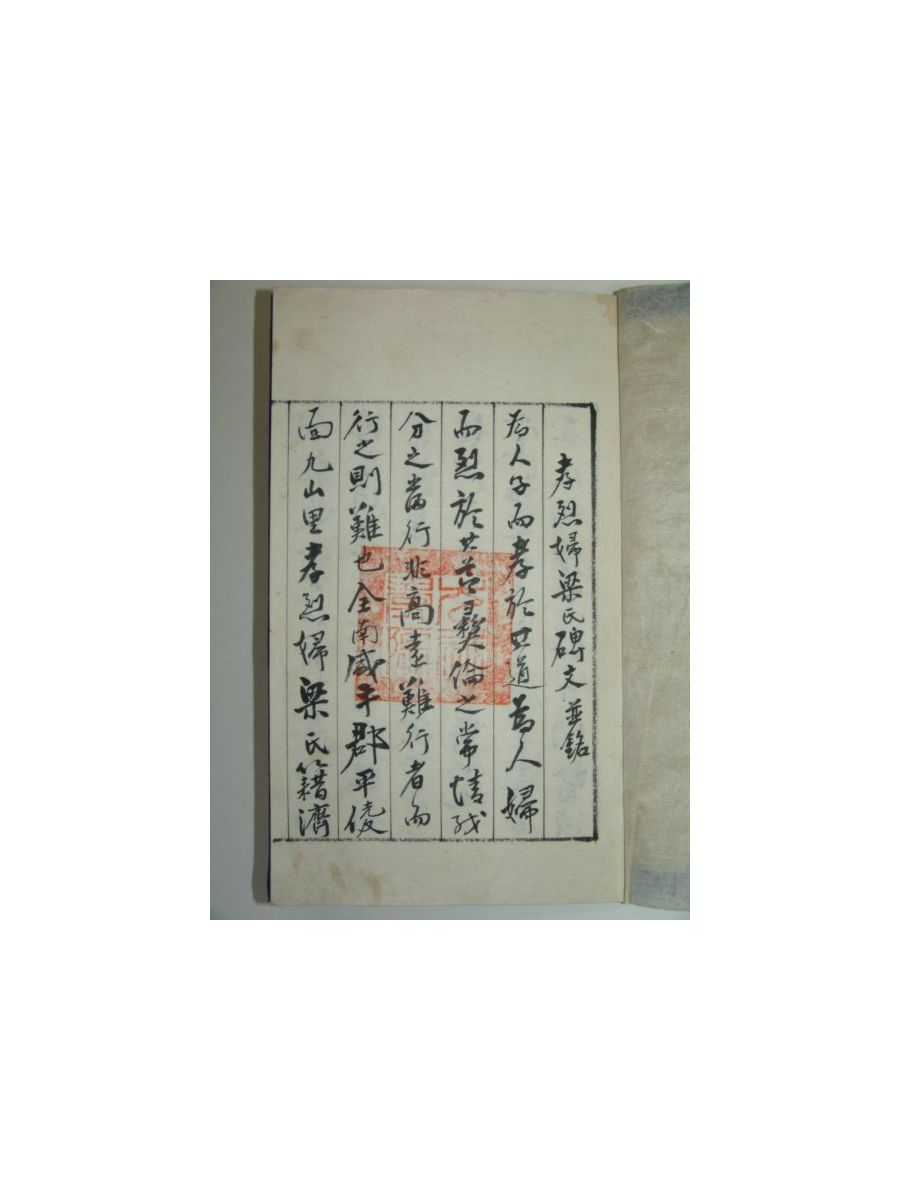 孝烈婦梁氏碑文 並銘
為人子而孝於世道為人婦
而烈於彛倫之常情職
分之當行非高遠難行者而
行之則難也全南咸平郡平陵
面九山里孝烈婦梁氏籍濟